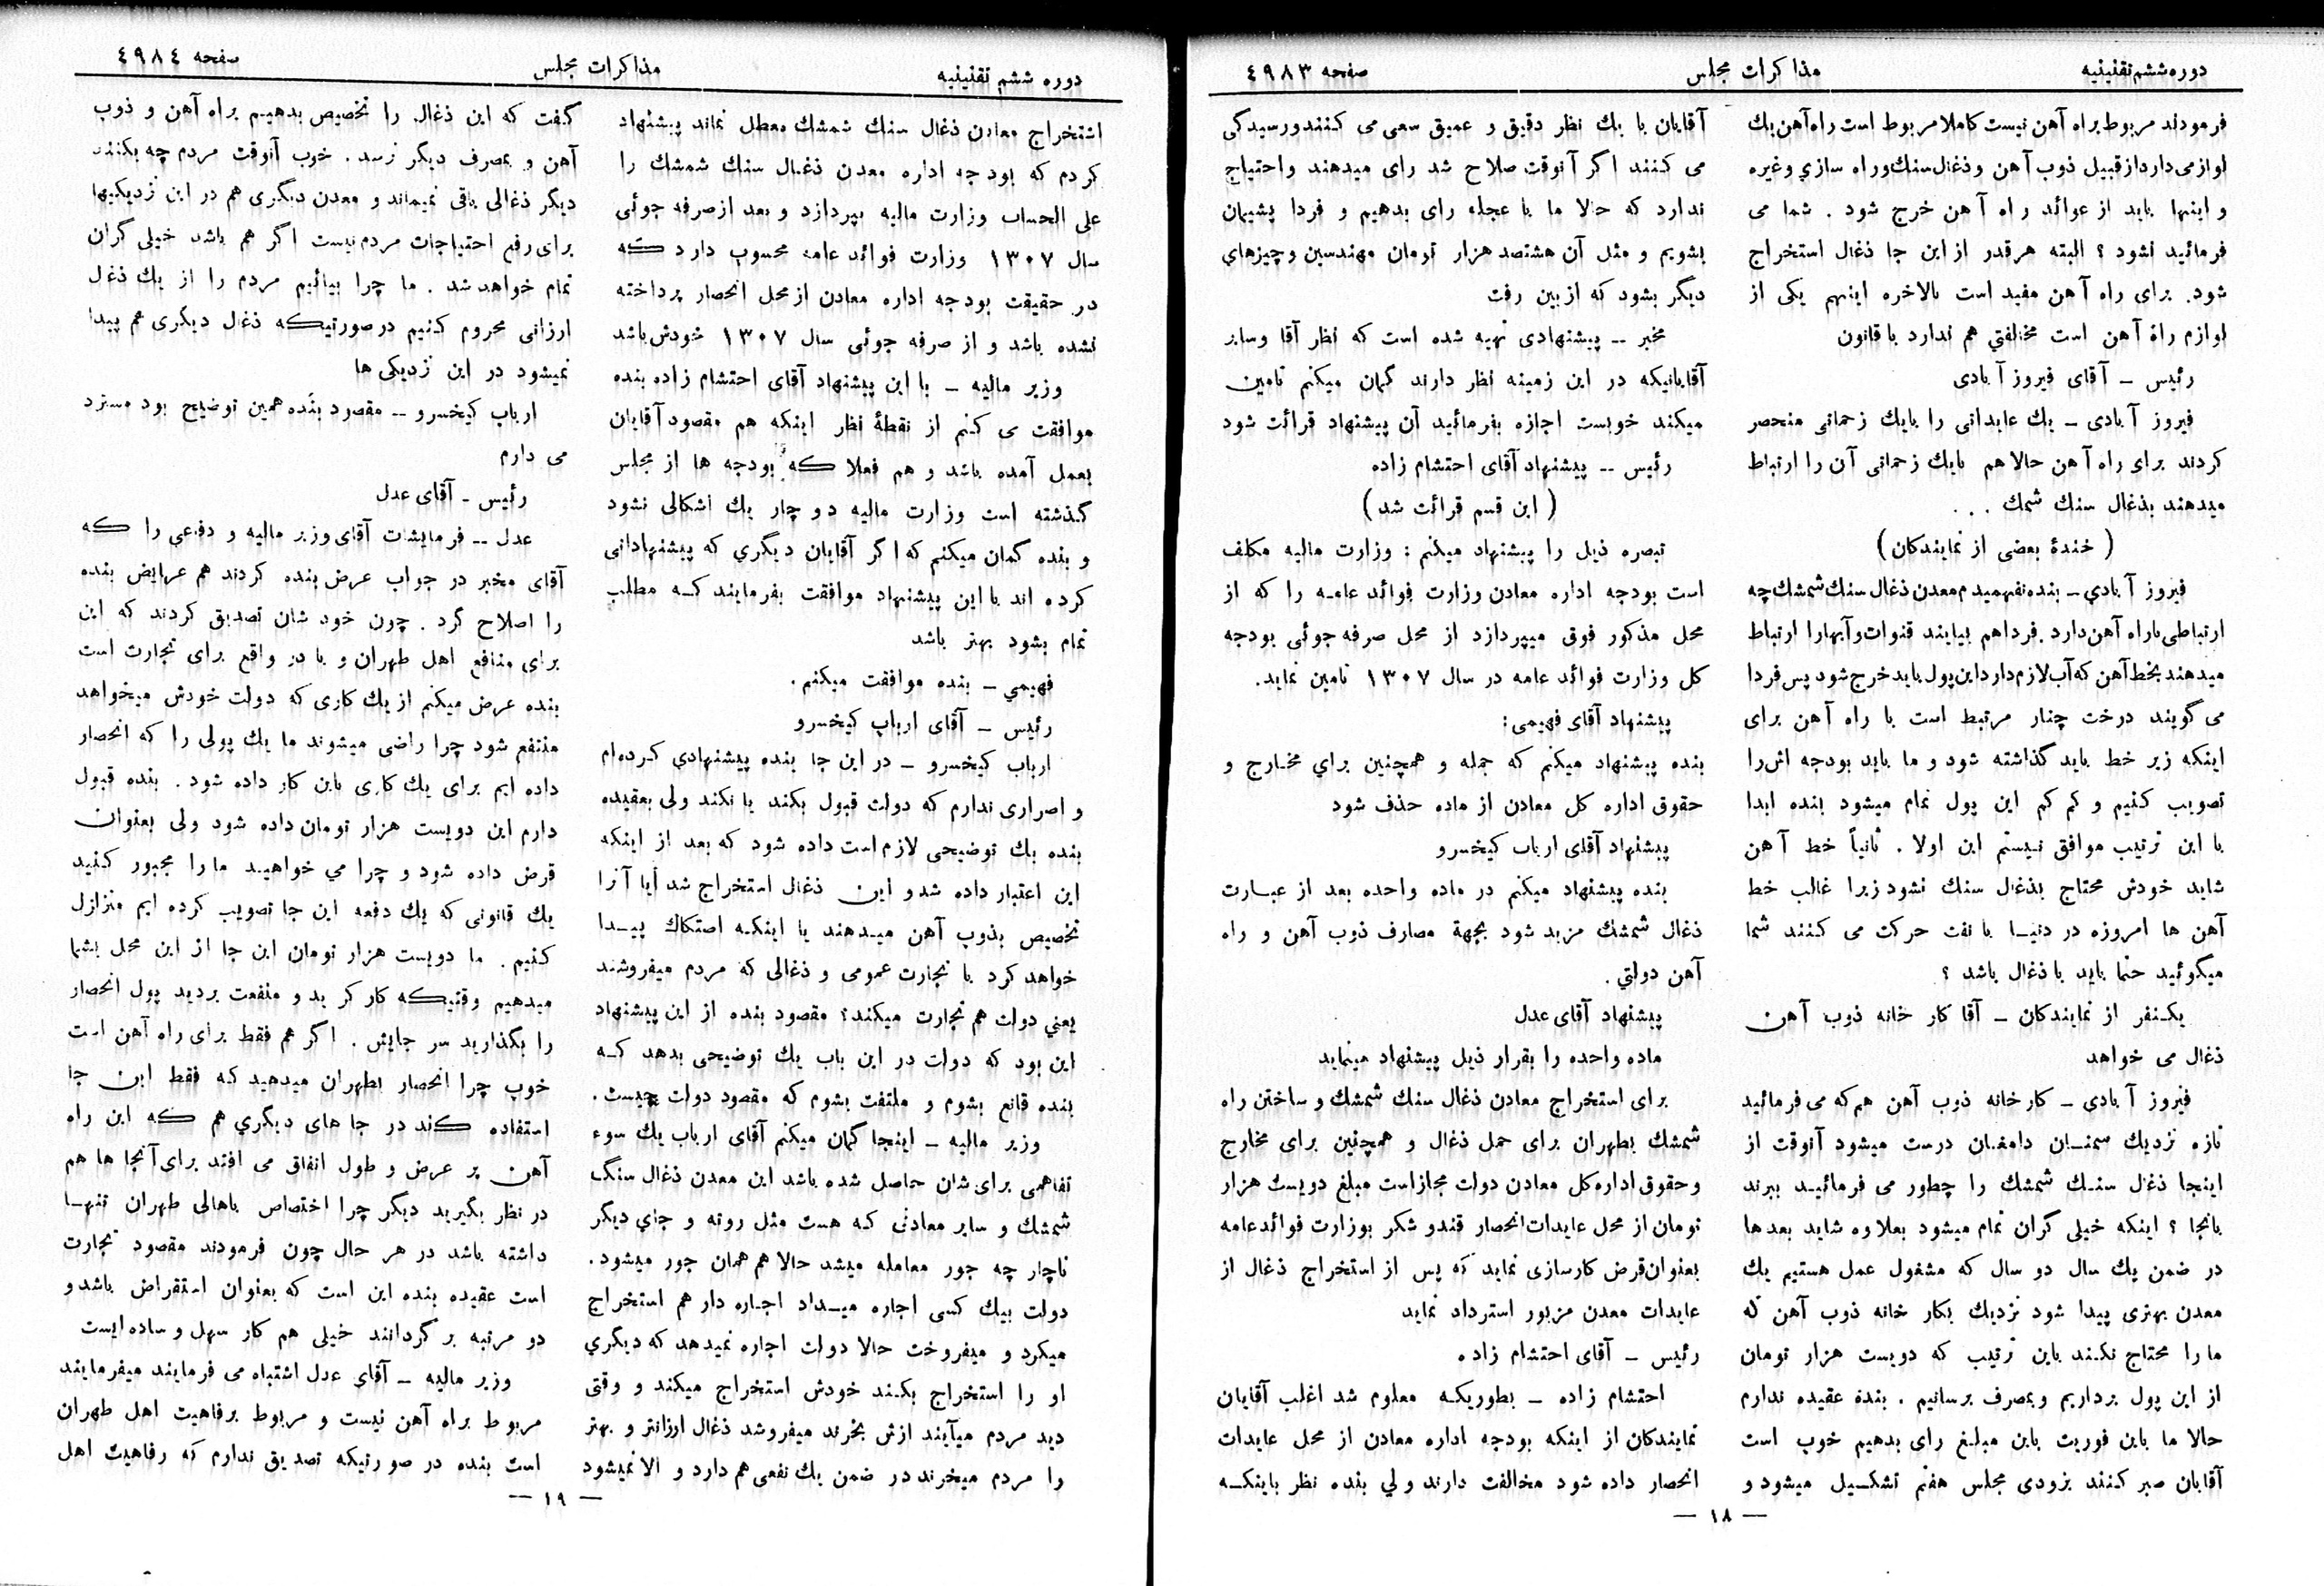 دوره ششم تقنینیه
مذاکرات مجلس
صفحه ٤٩٨٣
فرمودند مربوط براه آهن نیست کاملا مربوط است راه آهن یك
لوازمی دارد از قبیل ذوب آهن و ذغال سنك و راه سازي وغیره
و اینها باید از عوائد راه آهن خرج شود . شما می
فرمائید نشود ؟ البته هر قدر از این جا ذغال استخراج
شود. برای راه آهن مفید است بالاخره اینهم یکی از
لوازم راه آهن است مخالفتي هم ندارد با قانون
رئیس ـ آقای فیروز آبادی
فیروز آبادی ـ یك عایداتی را بایك زحماتی منحصر
کردند برای راه آهن حالا هم بایك زحماتی آن را ارتباط
میدهند بذغال سنك شمك . . .
( خندۀ بعضی از نمایندکان )
فیروز آبادي ـ بنده نفهمیدم معدن ذغال سنك شمشك چه
ارتباطی باراه آهن دارد . فردا هم بیایند قنوات و آبهارا ارتباط
میدهند بخط آهن که آب لازم دارد این پول باید خرج شود پس فردا
می گویند درخت چنار مرتبط است با راه آهن برای
اینکه زیر خط باید گذاشته شود و ما باید بودجه اش را
تصویب کنیم و کم کم این پول تمام میشود بنده ابدا
با این ترتیب موافق نیستم این اولا . ثانیاً خط آهن
شاید خودش محتاج بذغال سنك نشود زیرا غالب خط
آهن ها امروزه در دنیـا با نفت حرکت می کنند شما
میگوئید حتما باید با ذغال باشد ؟
یکـنفر از نمایندکان ـ آقا کار خانه ذوب آهن
ذغال می خواهد
فیروز آبادي ـ کارخانه ذوب آهن هم که می فرمائید
تازه نزدیك سمنـان دامغـان درست میشود آنوقت از
اینجا ذغال سنـك شمشك را چطور می فرمائیـد ببرند
بانجا ؟ اینکه خیلی گران تمام میشود بعلاوه شاید بعد ها
در ضمن یك سال دو سال که مشغول عمل هستیم یك
معدن بهتری پیدا شود نزدیك بکار خانه ذوب آهن که
ما را محتاج نکـند باین ترتیب که دویست هزار تومان
از این پول برداریم و بمصرف برسانیم . بنده عقیده ندارم
حالا ما باین فوریت باین مبلـغ رای بدهیم خوب است
آقایان صبر کنند بزودی مجلس هفتم تشکـیل میشود و
آقایان با یك نظر دقیق و عمیق سعی می کـنند و رسیدگی
می کـنند اگر آنوقت صلاح شد رای میدهند و احتیاج
ندارد که حالا ما با عجله رای بدهیم و فردا پشیمان
بشویم و مثل آن هشتصد هزار تومان مهندسین و چیزهاي
دیگر بشود که از بین رفت
مخبر ـ پیشنهادی تهیه شده است که نظر آقا و سایر
آقایانیکه در این زمینه نظر دارند گمان میکنم تامین
میکند خوبست اجازه بفرمائید آن پیشنهاد قرائت شود
رئیس ـ پیشنهاد آقای احتشام زاده
( این قسم قرائت شد )
تبصره ذیل را پیشنهاد میکنم : وزارت مالیه مکلف
است بودجه اداره معادن وزارت فوائد عامـه را که از
محل مذکور فوق میپردازد از محل صرفه جوئی بودجه
کل وزارت فوائد عامه در سال ١٣٠٧ تامین نماید.
پیشنهاد آقای فهیمی :
بنده پیشنهاد میکنم که جمله و همچنین براي مخارج و
حقوق اداره کل معادن از ماده حذف شود
پیشنهاد آقای ارباب کیخسرو
بنده پیشنهاد میکنم در ماده واحده بعد از عبـارت
ذغال شمشك مزید شود بجهة مصارف ذوب آهن و راه
آهن دولتي .
پیشنهاد آقای عدل
ماده واحده را بقرار ذیل پیشنهاد مینماید
برای استخراج معادن ذغال سنك شمشك و ساختن راه
شمشك بطهران برای حمل ذغال و همچنین برای مخارج
و حقوق اداره کل معادن دولت مجاز است مبلغ دویست هزار
تومان از محل عایدات انحصار قند و شکر بوزارت فوائد عامه
بعنوان قرض کارسازی نماید که پس از استخراج ذغال از
عایدات معدن مزبور استرداد نماید
رئیس ـ آقای احتشام زاده
احتشام زاده ـ بطوریکـه معلوم شد اغلب آقایان
نمایندکان از اینکه بودجه اداره معادن از محل عایدات
انحصار داده شود مخالفت دارند ولي بنده نظر باینکـه
— ١٨ —
دوره ششم تقنینیه
مذاکرات مجلس
صفحه ٤٩٨٤
استخراج معادن ذغال سنك شمشك معطل نماند پیشنهاد
کردم که بودجه اداره معدن ذغال سنك شمشك را
علی الحساب وزارت مالیه بپردازد و بعد از صرفه جوئی
سال ١٣٠٧ وزارت فوائد عامه محسوب دارد که
در حقیقت بودجه اداره معادن از محل انحصار پرداخته
نشده باشد و از صرفه جوئی سال ١٣٠٧ خودش باشد
وزیر مالیه ـ با این پیشنهاد آقای احتشام زاده بنده
موافقت می کنم از نقطۀ نظر اینکه هم مقصود آقایان
بعمل آمده باشد و هم فعلا که بودجه ها از مجلس
گـذشته است وزارت مالیه دوچار یك اشکالی نشود
و بنده گمان میکنم که اگر آقایان دیگري که پیشنهاداتی
کرده اند با این پیشنهاد موافقت بفرمایند کـه مطلب
تمام بشود بهتر باشد
فهیمي ـ بنده موافقت میکنم .
رئیس ـ آقای ارباب کیخسرو
ارباب کیخسرو ـ در این جا بنده پیشنهادي کرده ام
و اصراری ندارم که دولت قبول بکند یا نکند ولی بعقیده
بنده یك توضیحی لازم است داده شود که بعد از اینکه
این اعتبار داده شد و این ذغال استخراج شد آیا آنرا
تخصیص بذوب آهن میـدهند یا اینکـه اصتکاك پیـدا
خواهد کرد با تجارت عمومی و ذغالی که مردم میفروشند
یعني دولت هم تجارت میکند ؟ مقصود بنده از این پیشنهاد
این بود که دولت در این باب یك توضیحی بدهد کـه
بنده قانع بشوم و ملتفت بشوم که مقصود دولت چیست .
وزیر مالیه ـ اینجا گمان میکنم آقای ارباب یك سوء
تفاهمی برای شان حاصل شده باشد این معدن ذغال سنگ
شمشك و سایر معادنی که هست مثل روته و جاي دیگر
ناچار چه جور معامله میشد حالا هم همان جور میشود .
دولت بیك کسی اجاره میـداد اجـاره دار هم استخراج
میکرد و میفروخت حالا دولت اجاره نمیدهد که دیگري
او را استخراج بکـند خودش استخراج میکند و وقتی
دید مردم میآیند ازش بخرند میفروشد ذغال ارزانتر و بهتر
را مردم میخرند در ضمن یك نفعی هم دارد و الا نمیشود
گـفت که این ذغال را تخصیص بدهیـم براه آهن و ذوب
آهن و بمصرف دیگر نرسد . خوب آنوقت مردم چه بکنند
دیگر ذغالی باقی نمیماند و معدن دیگری هم در این نزدیکیها
برای رفع احتیاجات مردم نیست اگر هم باشد خیلی گران
تمام خواهد شد . ما چرا بیائیم مردم را از یك ذغال
ارزانی محروم کنیم در صورتیکه ذغال دیگری هم پیدا
نمیشود در این نزدیکی ها
ارباب کیخسرو ـ مقصود بنده همین توضیح بود مسترد
می دارم
رئیس ـ آقای عدل
عدل ـ فرمایشات آقای وزیر مالیه و دفاعي را که
آقای مخبر در جواب عرض بنده کردند هم عرایض بنده
را اصلاح کرد . چون خود شان تصدیق کردند که این
برای منافع اهل طهران و یا در واقع برای تجارت است
بنده عرض میکنم از یك کاری که دولت خودش میخواهد
منتفع شود چرا راضی میشوند ما یك پولی را که انحصار
داده ایم برای یك کاری باین کار داده شود . بنده قبول
دارم این دویست هزار تومان داده شود ولی بعنوان
قرض داده شود و چرا می خواهیـد ما را مجبور کنید
یك قانونی که یك دفعه این جا تصویب کرده ایم متزلزل
کنیم . ما دویست هزار تومان این جا از این محل بشما
میدهیم وقتیکه کار کردید و منفعت بردید پول انحصار
را بگذارید سر جایش . اگر هم فقط برای راه آهن است
خوب چرا انحصار بطهران میدهید که فقط این جا
استفاده کند در جا های دیگري هم که این راه
آهن پر عرض و طول اتفاق می افتد برای آنجا ها هم
در نظر بگیرید دیگر چرا اختصاص باهالی طهران تنهـا
داشته باشد در هر حال چون فرمودند مقصود تجارت
است عقیده بنده این است که بعنوان استقراض باشد و
دو مرتبه بر گردانند خیلی هم کار سهل و ساده ایست
وزیر مالیه ـ آقای عدل اشتباه می فرمایند میفرمایند
مربوط براه آهن نیست و مربوط برفاهیت اهل طهران
است بنده در صورتیکه تصدیق ندارم که رفاهیت اهل
— ١٩ —